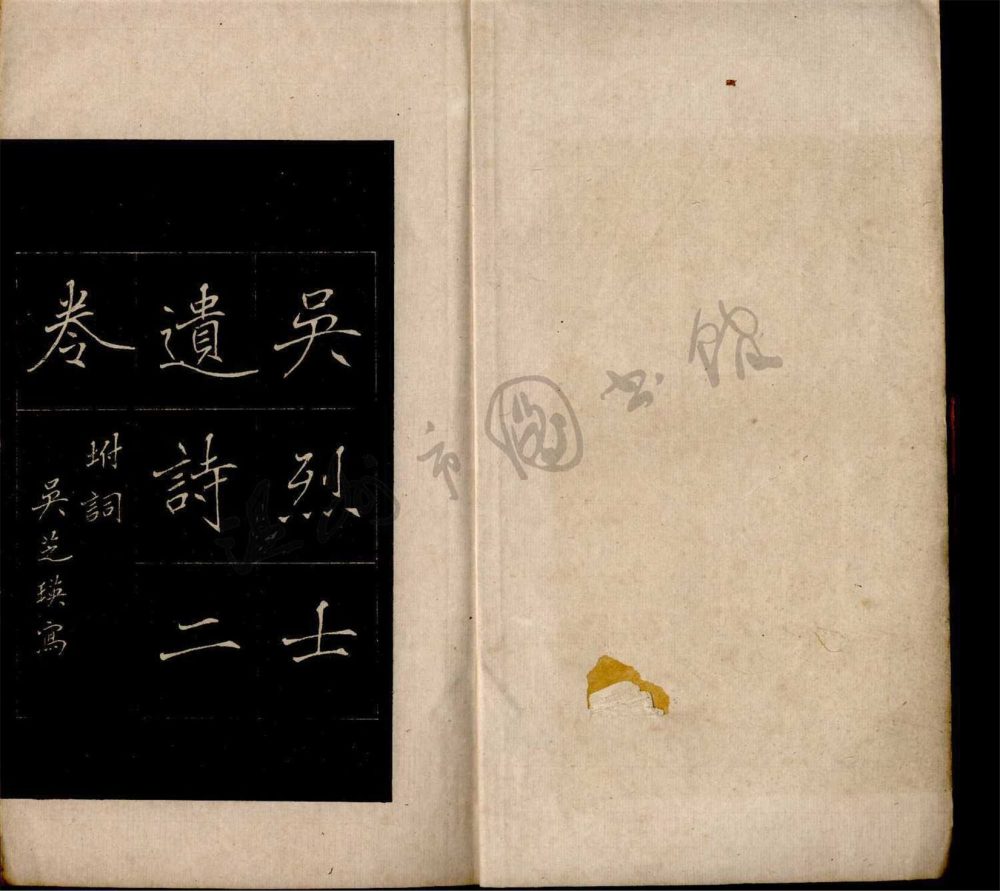 吳烈士
遺詩二
卷
坿詞
吳芝瑛寫
温州市圖书館